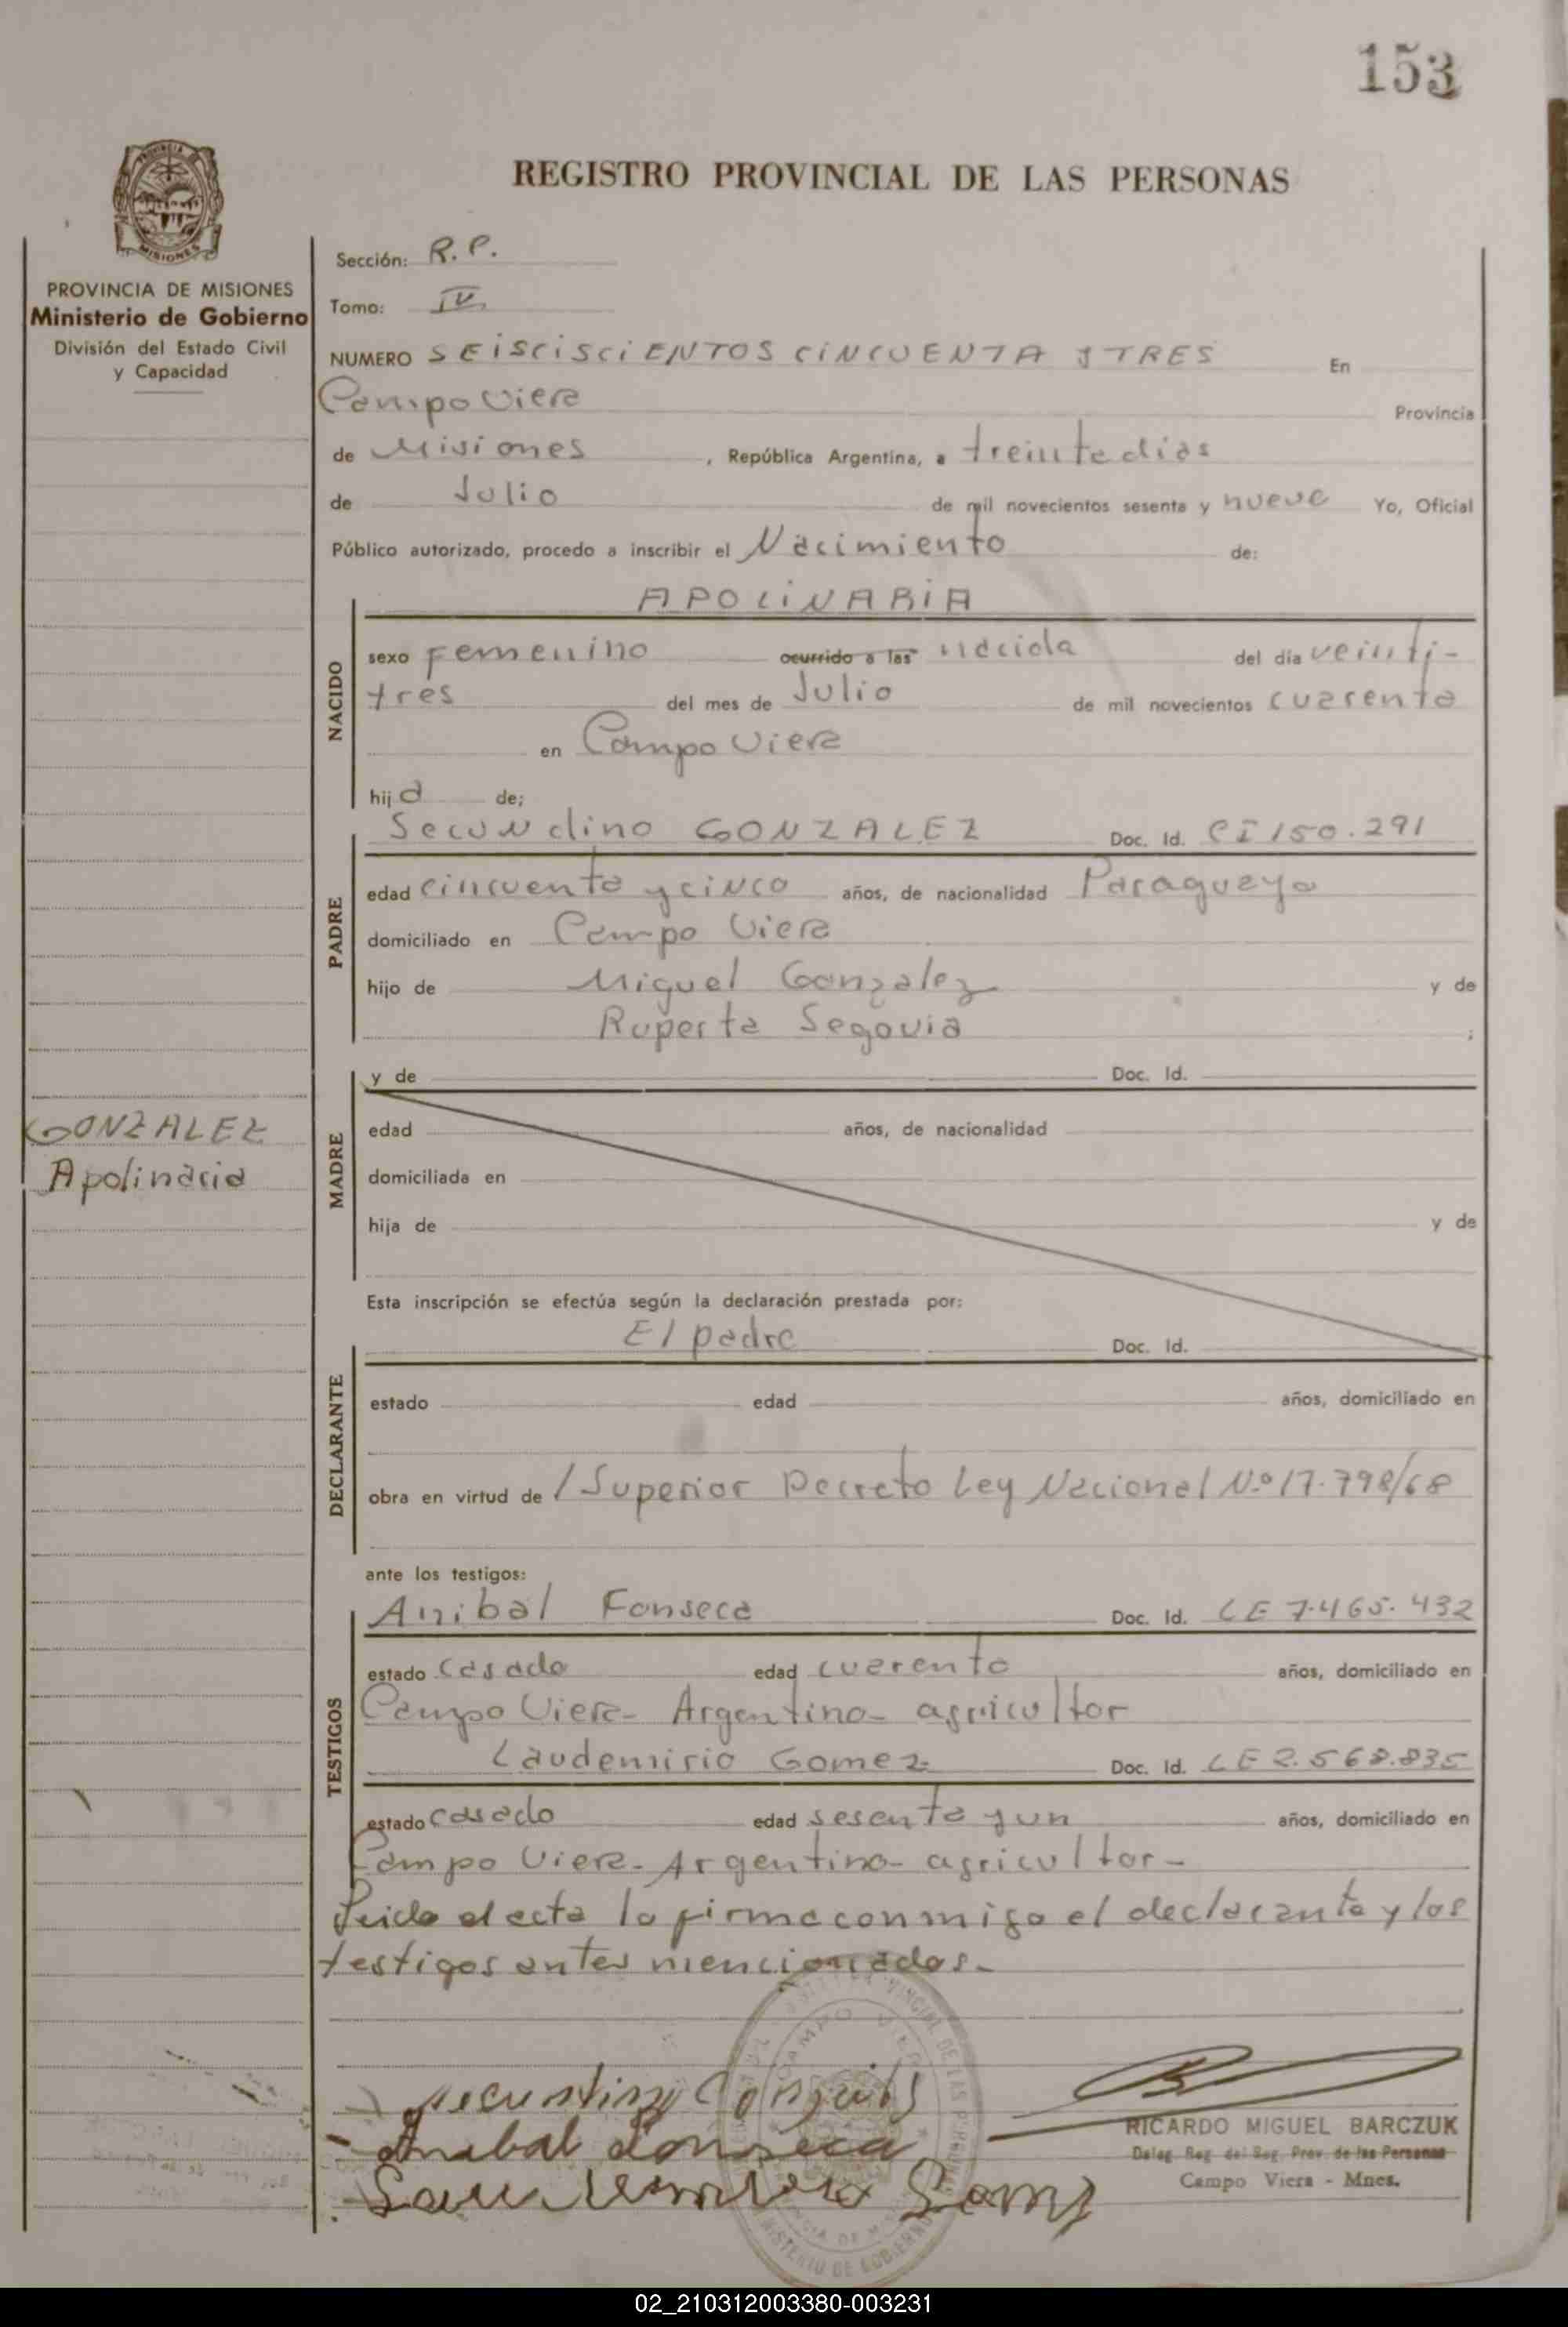 153
REGISTRO PROVINCIAL DE LAS PERSONAS
MISIONES
PROVINCIA DE MISIONES
Ministerio de Gobierno
División del Estado Civil
y Capacidad
Sección: R.P.
Tomo: IV
NUMERO SEISCISCIENTOS CINCUENTA Y TRES En
Campo Viera Provincia
de Misiones , República Argentina, a treinta dias
de Julio de mil novecientos sesenta y nueve Yo, Oficial
Público autorizado, procedo a inscribir el Nacimiento de:
APOLINARIA
NACIDO
sexo femenino ocurrido a las nacida del día veinti-
tres del mes de Julio de mil novecientos cuarenta
en Campo Viera
hija de;
Secundino GONZALEZ Doc. Id. CI 150.291
PADRE
edad cincuenta y cinco años, de nacionalidad Paraguaya
domiciliado en Campo Viera
hijo de Miguel Gonzalez y de
Ruperta Segovia ;
y de Doc. Id.
MADRE
edad años, de nacionalidad
GONZALEZ
Apolinaria
domiciliada en
hija de y de
Esta inscripción se efectúa según la declaración prestada por:
El padre Doc. Id.
DECLARANTE
estado edad años, domiciliado en
obra en virtud de / Superior Decreto Ley Nacional N.º 17.798/68
ante los testigos:
Anibal Fonseca Doc. Id. LE 7.465.432
TESTIGOS
estado casado edad cuarenta años, domiciliado en
Campo Viera- Argentino- agricultor
Laudemirio Gomez Doc. Id. LE 2.568.835
estado casado edad sesenta y un años, domiciliado en
Campo Viera- Argentino- agricultor-
Leida el acta la firma conmigo el declarante y los
testigos antes mencionados.-
Anibal Fonseca
RICARDO MIGUEL BARCZUK
Deleg. Reg. del Reg. Prov. de las Personas
Campo Viera - Mnes.
02_210312003380-003231